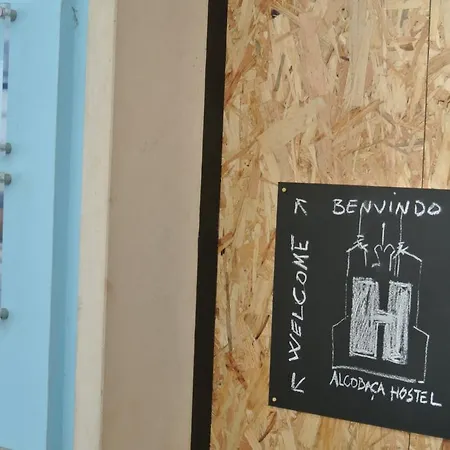 BENVINDO
WELCOME
H
ALCOBAÇA HOSTEL